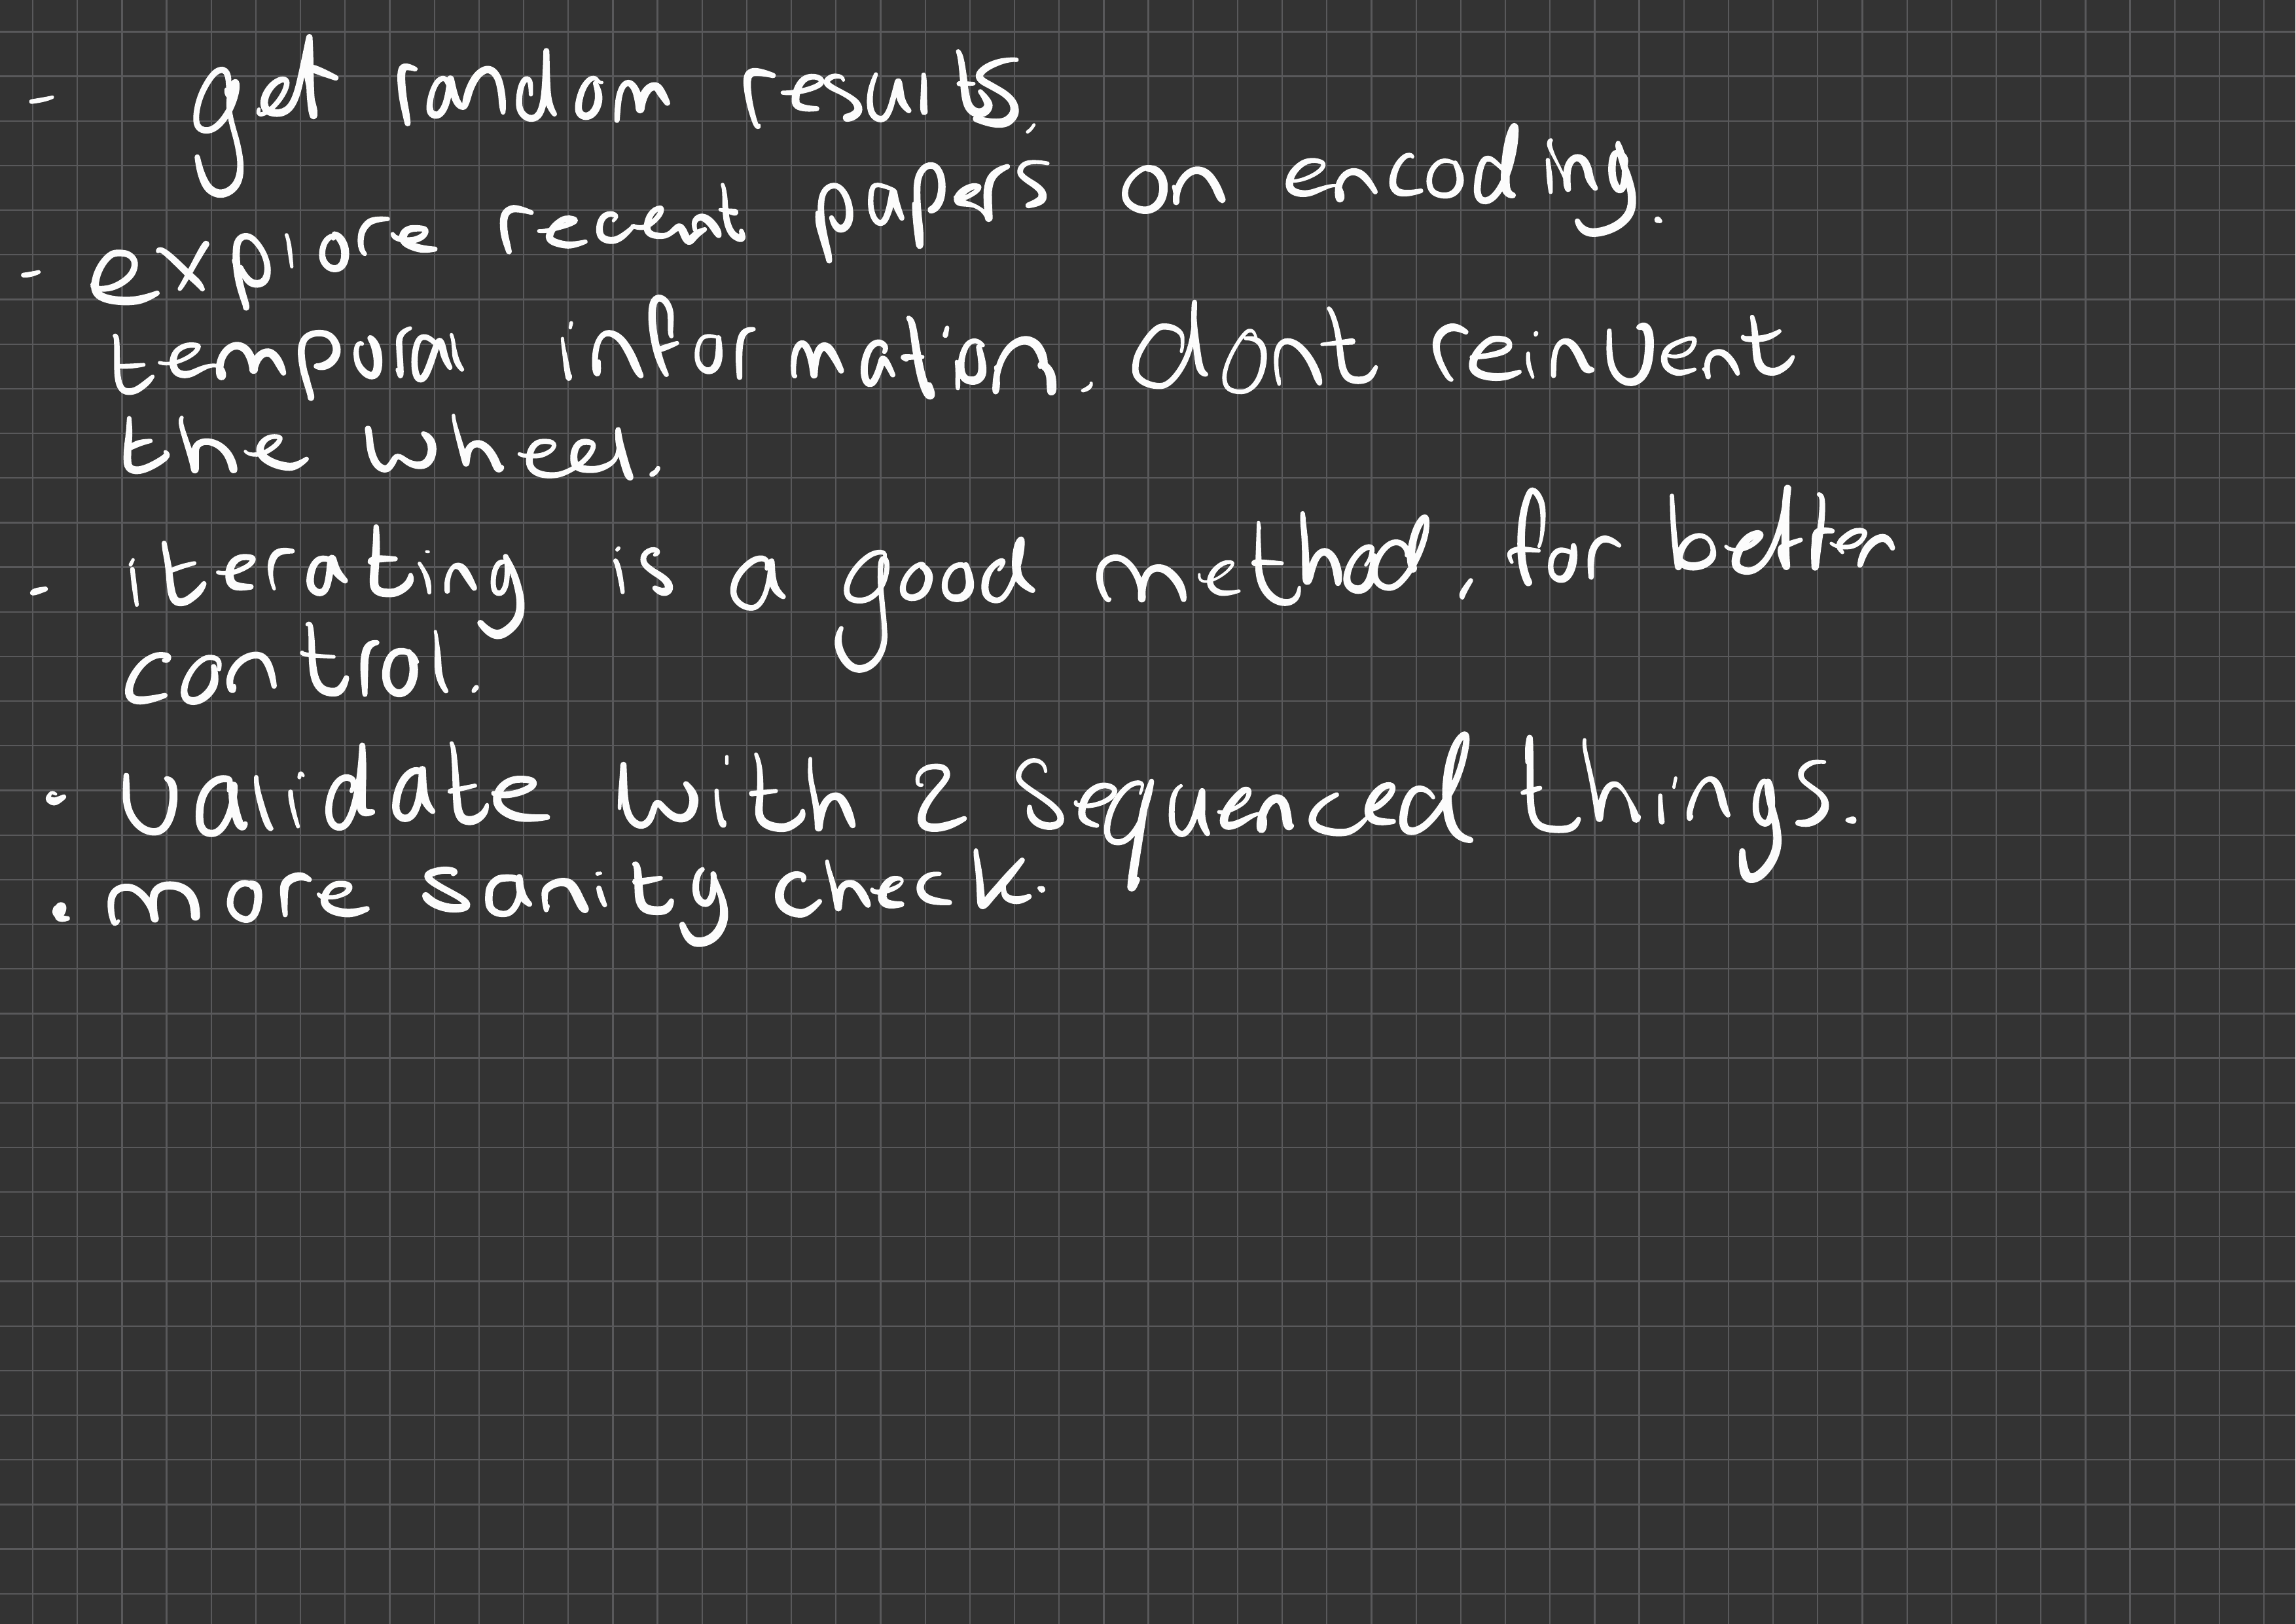 - get random results.
- explore recent papers on encoding.
temporal information. dont reinvent
the wheel.
- iterating is a good method, for better
control.
• validate with 2 sequenced things.
• more sanity check.